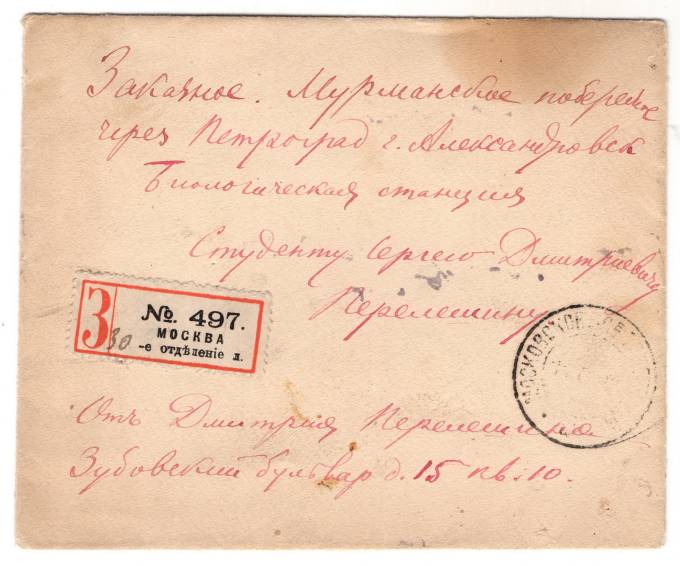 Заказное. Мурманское побережье
через Петроград г. Александровск
Биологическая станция
Студенту Сергею Дмитриевичу
Перелешину
З
30
№. 497.
МОСКВА
-е отдѣленіе л.
Отъ Дмитрия Перелешина
Зубовский бульвар д. 15 кв. 10.